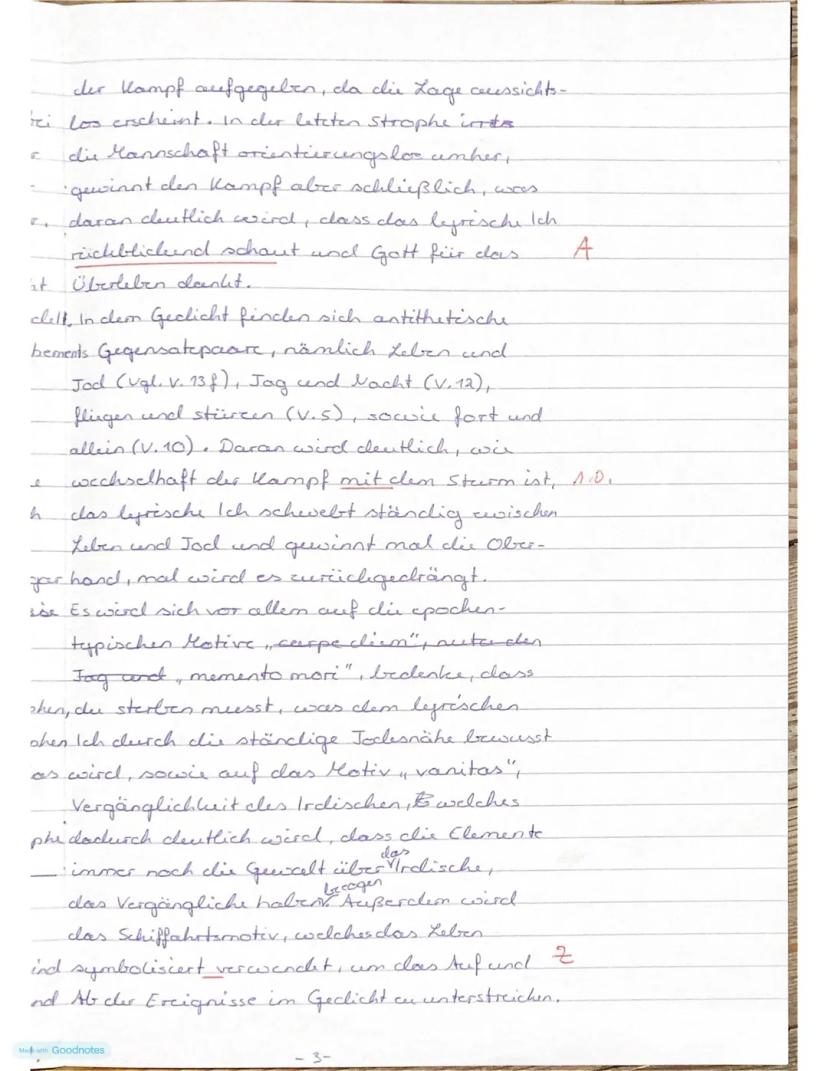 der Kampf aufgegeben, da die Lage aussichts-
rei los erscheint. In der letzten Strophe irrts
r die Mannschaft orientierungslos umher,
- gewinnt den Kampf aber schließlich, was
r, daran deutlich wird, dass das lyrische Ich
rückblickend schaut und Gott für das A
at Überleben dankt.
delt. In dem Gedicht finden sich antithetische
bements Gegensatzpaare, nämlich Leben und
Tod (vgl. V. 13f), Tag und Nacht (V. 12),
fliegen und stürzen (V. 5), sowie fort und
allein (V. 10). Daran wird deutlich, wie
e wechselhaft der Kampf mit dem Sturm ist, n.O.
h das lyrische Ich schwebt ständig zwischen
Leben und Tod und gewinnt mal die Ober-
gar hand, mal wird es zurückgedrängt.
Es wird sich vor allem auf die epochen-
typischen Motive „carpe diem", nutze den
Tag und „memento mori", bedenke, dass
ehen, du sterben musst, was dem lyrischen
ohen Ich durch die ständige Todesnähe bewusst
as wird, sowie auf das Motiv „vanitas",
Vergänglichkeit des Irdischen, welches
phe dadurch deutlich wird, dass die Elemente
immer noch die Gewalt über das Irdische,
das Vergängliche haben. bezogen Außerdem wird
das Schiffahrtsmotiv, welches das Leben
ind symbolisiert verwendet, um das Auf und Z
nd Ab der Ereignisse im Gedicht zu unterstreichen.
Made with Goodnotes
- 3 -